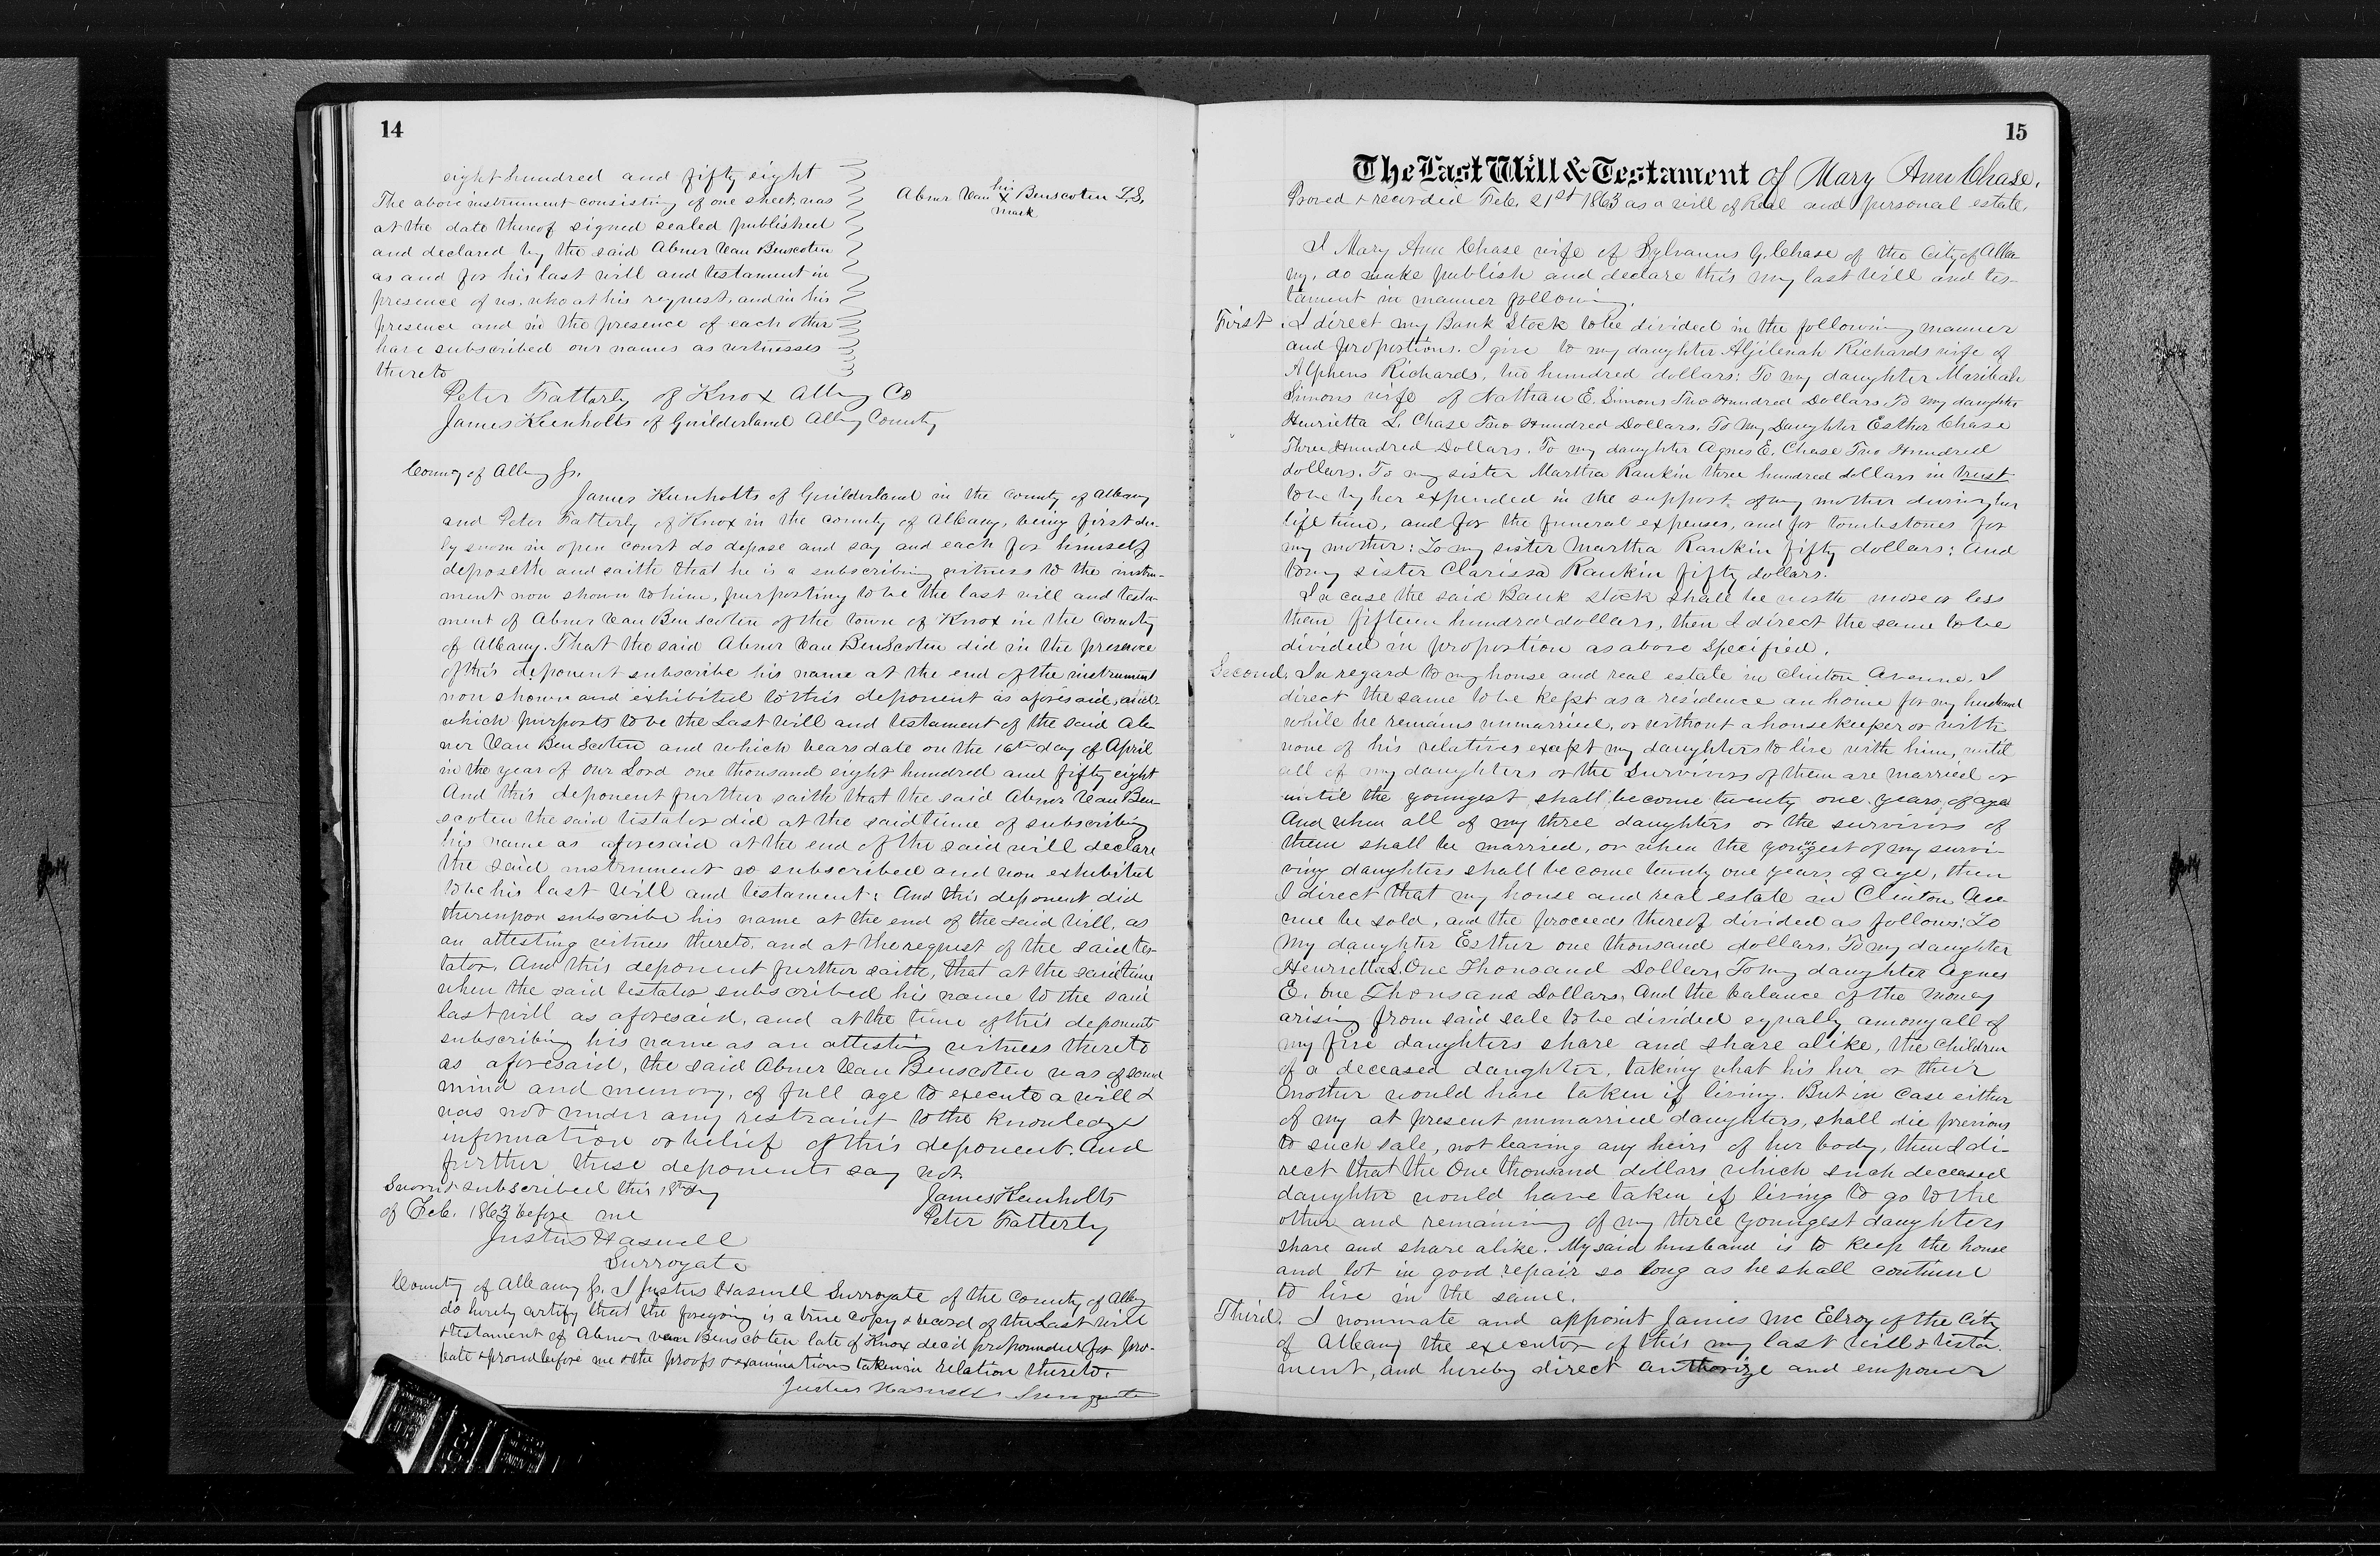 14
eight hundred and fifty eight
The above instrument consisting of one sheet, was
at the date thereof signed sealed published
and declared by the said Abner Van Benscoten
as and for his last will and testament in
presence of us, who at his request, and in his
presence and in the presence of each other
have subscribed our names as witnesses
thereto
his
Abner Van X Benscoten L.S.
mark
Peter Fatterly of Knox Albany Co
James Keenholts of Guilderland Albany County
County of Albany ss.
James Keenholts of Guilderland in the county of Albany
and Peter Fatterly of Knox in the county of Albany, being first du-
ly sworn in open court do depose and say and each for himself
deposeth and saith that he is a subscribing witness to the instru-
ment now shown to him, purporting to be the last will and testa-
ment of Abner Van Benscoten of the town of Knox in the County
of Albany. That the said Abner Van BenScoten did in the presence
of this deponent subscribe his name at the end of the instrument
now shown and exhibited to this deponent as aforesaid, and
which purports to be the Last will and testament of the said Ab-
ner Van BenScoten and which bears date on the 16th day of April
in the year of our Lord one thousand eight hundred and fifty eight
And this deponent further saith that the said Abner Van Ben
scoten the said testator did at the said time of subscribing
his name as aforesaid at the end of the said will declare
the said instrument so subscribed and now exhibited
to be his last Will and testament: And this deponent did
thereupon subscribe his name at the end of the said Will, as
an attesting witness thereto, and at the request of the said tes-
tator. And this deponent further saith, that at the said time
when the said testator subscribed his name to the said
last will as aforesaid, and at the time of this deponents
subscribing his name as an attesting witness thereto
as aforesaid, the said Abner Van Benscoten was of sound
mind and memory, of full age to execute a will &
was not under any restraint to the knowledge
information or belief of this deponent. And
further these deponents say not.
Sworn & subscribed this 18th day
of Feb. 1863 before me
Justus Haswell
Surrogate
James Keenholts
Peter Fatterly
County of Albany ss. I Justus Haswell Surrogate of the County of Albany
do hereby certify that the foregoing is a true copy & record of the Last will
& testament of Abner Van Benscoten late of Knox dec'd propounded for pro-
bate & proved before me & the proofs & examinations taken in relation thereto.
Justus Haswell Surrogate
15
The Last Will & Testament of Mary Ann Chase.
Proved & recorded Feb. 21st 1863 as a will of Real and personal estate.
I Mary Ann Chase wife of Sylvanus G. Chase of the City of Alba-
ny, do make publish and declare this my last Will and tes-
tament in manner following.
First. I direct my Bank Stock to be divided in the following manner
and proportions. I give to my daughter Aljilenah Richards wife of
Alpheus Richards, two hundred dollars: To my daughter Maribah
Simons wife of Nathan E. Simons Two Hundred Dollars. To my daughter
Henrietta L. Chase Two Hundred Dollars. To My Daughter Esther Chase
Three Hundred Dollars. To my daughter Agnes E. Chase Two Hundred
dollars. To my sister Martha Rankin three hundred dollars in trust
to be by her expended in the support of my mother during her
life time, and for the funeral expenses, and for tombstones for
my mother: To my sister Martha Rankin fifty dollars: And
to my sister Clarissa Rankin fifty dollars.
In case the said Bank stock shall be worth more or less
than fifteen hundred dollars, then I direct the same to be
divided in proportion as above specified.
Second. In regard to my house and real estate in Clinton Avenue, I
direct the same to be kept as a residence an home for my husband
while he remains unmarried, or without a housekeeper or with
none of his relatives except my daughters to live with him, until
all of my daughters or the Survivors of them are married or
until the youngest shall become twenty one years of age
And when all of my three daughters or the survivors of
them shall be married, or when the youngest of my survi-
ving daughters shall become twenty one years of age, then
I direct that my house and real estate in Clinton Ave-
nue be sold, and the proceeds thereof divided as follows: To
My daughter Esther one thousand dollars. To my daughter
Henrietta L. One Thousand Dollars, To my daughter Agnes
E. One Thousand Dollars, And the balance of the money
arising from said sale to be divided equally among all of
my five daughters share and share alike, the children
of a deceased daughter, taking what his her or their
mother would have taken if living. But in case either
of my at present unmarried daughters, shall die previous
to such sale, not leaving any heirs of her body, then I di-
rect that the One thousand dollars which such deceased
daughter would have taken if living to go to the
other and remaining of my three youngest daughters
share and share alike. My said husband is to keep the house
and lot in good repair so long as he shall continue
to live in the same.
Third. I nominate and appoint James McElroy of the City
of Albany the executor of this my last will & testa-
ment, and hereby direct authorize and empower